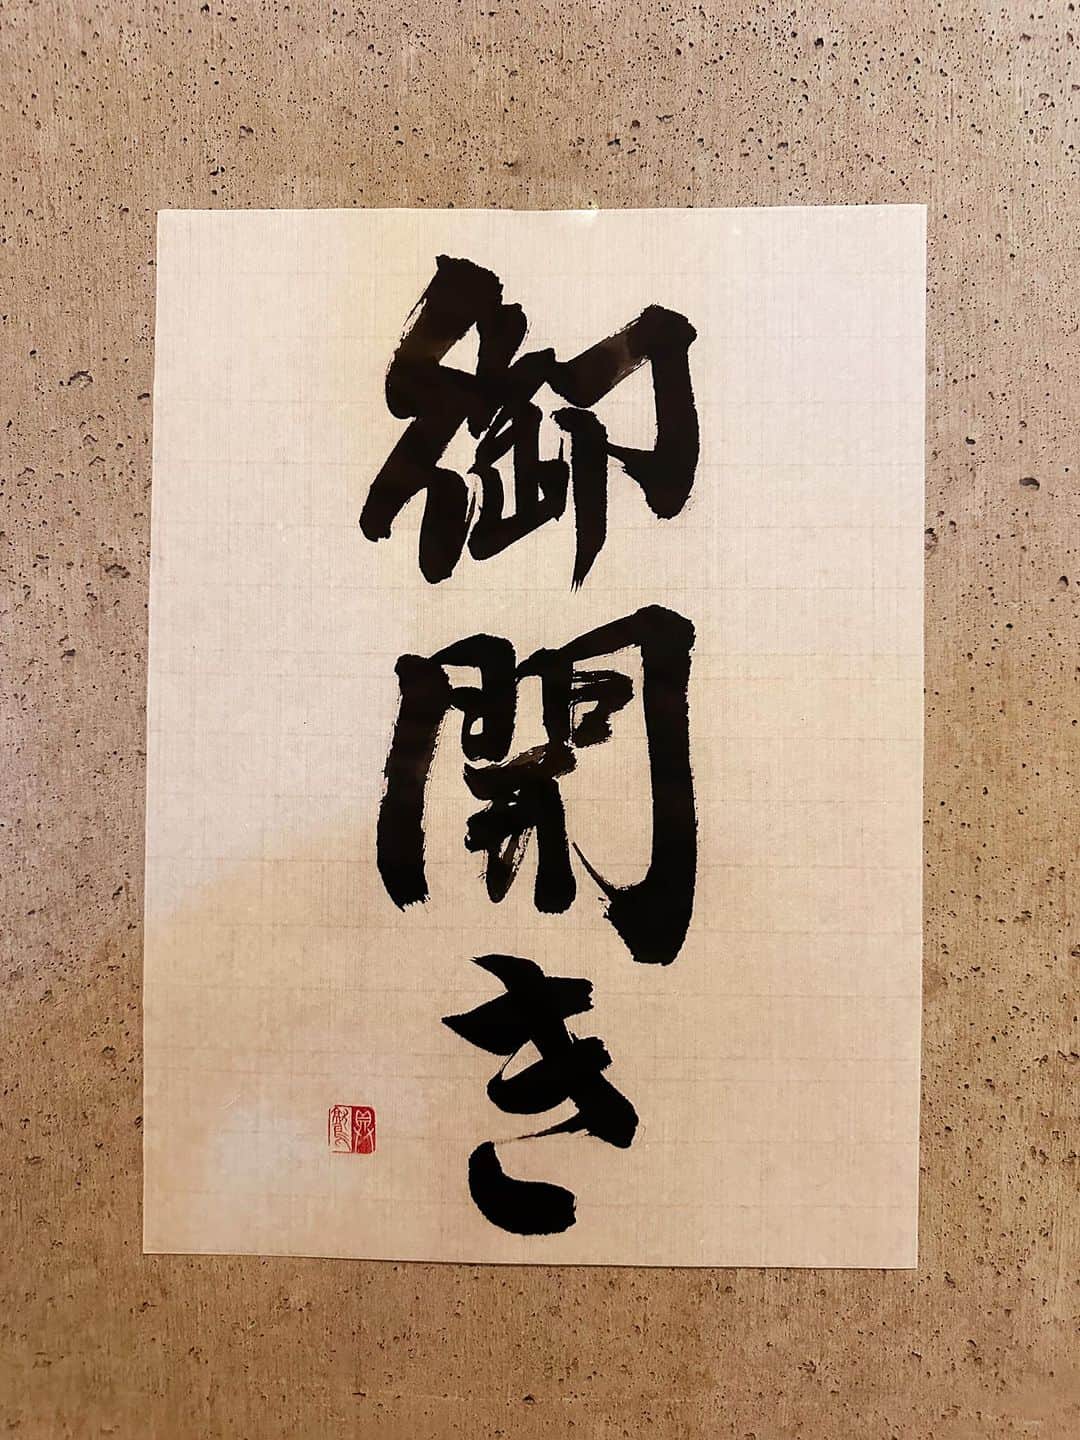 御開き